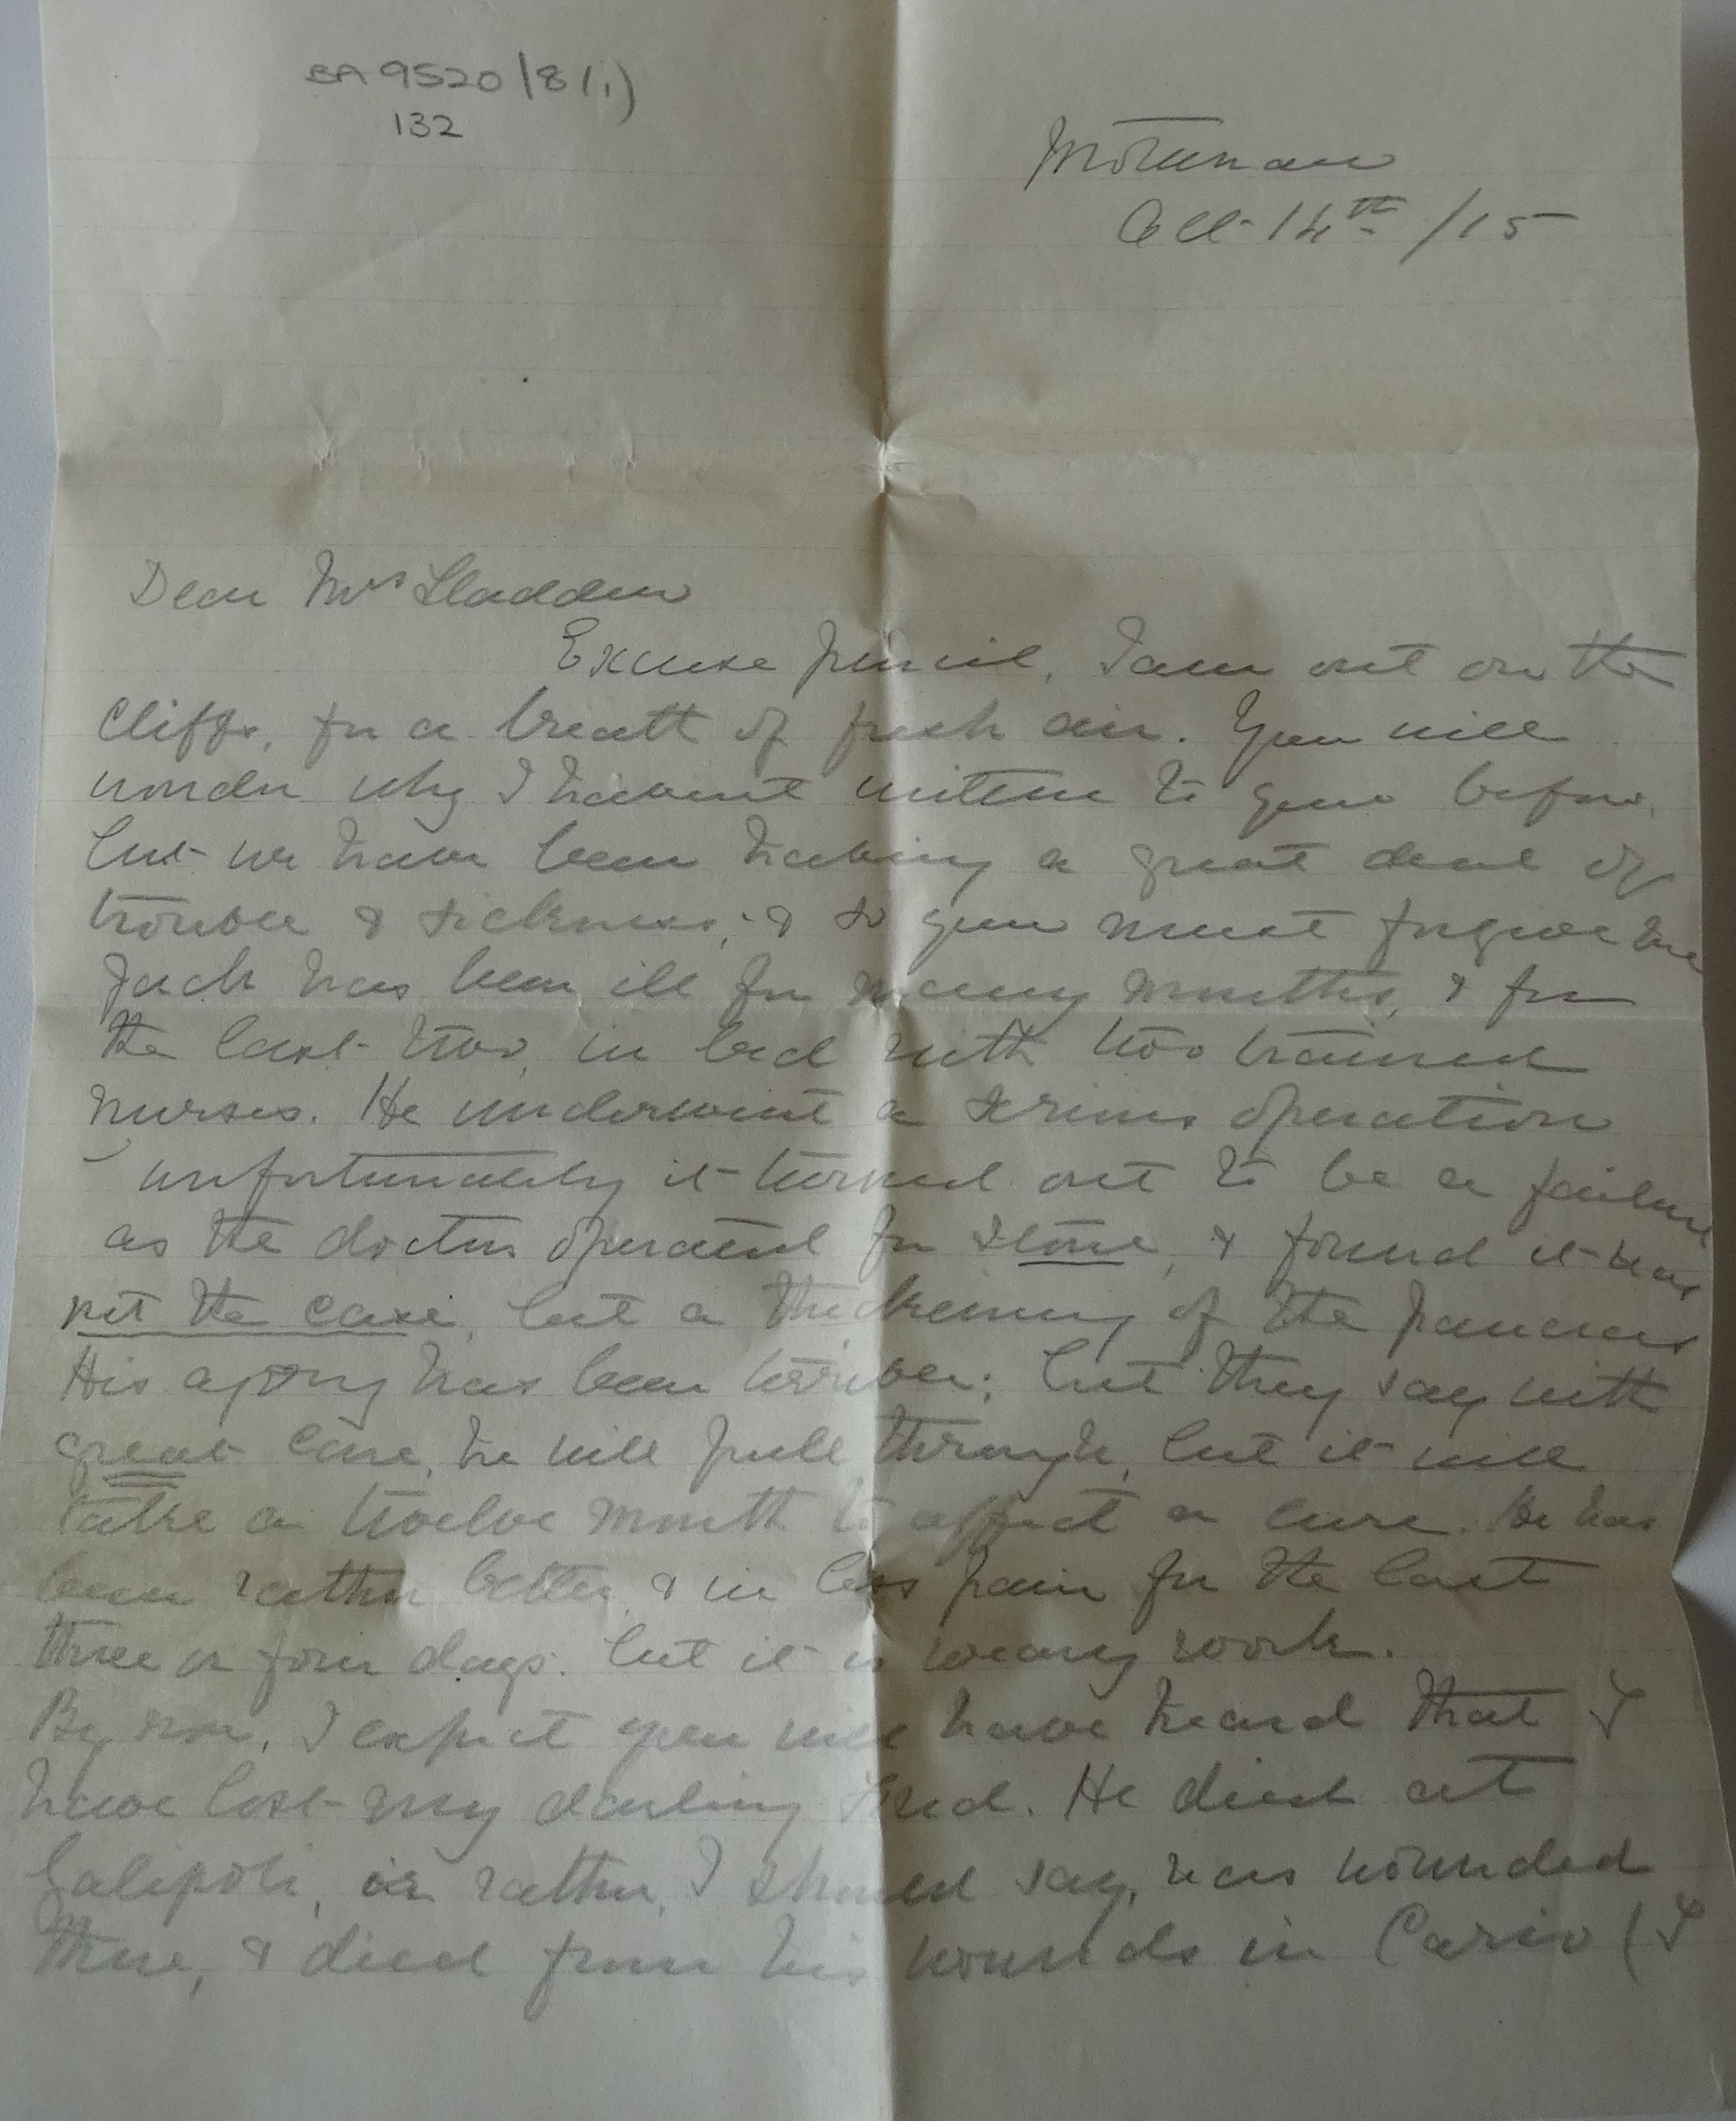 BA 9520/8(1)
132
Motunau
Oct 14th /15
Dear Mrs Sladden
Excuse pencil, I am out on the
Cliffs, for a breath of fresh air. You will
wonder why I havent written to you before,
but we have been having a great deal of
trouble & sickness, & so you must forgive me
Jack has been ill for many months, & for
the last two, in bed with two trained
nurses. He underwent a serious operation
unfortunately it turned out to be a failure
as the doctors operated for stone, & found it was
not the case, but a thickening of the pancreas
His agony has been terrible; but they say with
great care, he will pull through, but it will
take a twelve month to affect a cure. He has
been rather better, & in less pain for the last
three or four days. but it is weary work.
By now, I expect you will have heard that I
have lost my darling Fred. He died at
Galipoli, or rather, I should say, was wounded
there, & died from his wounds in Cario (I